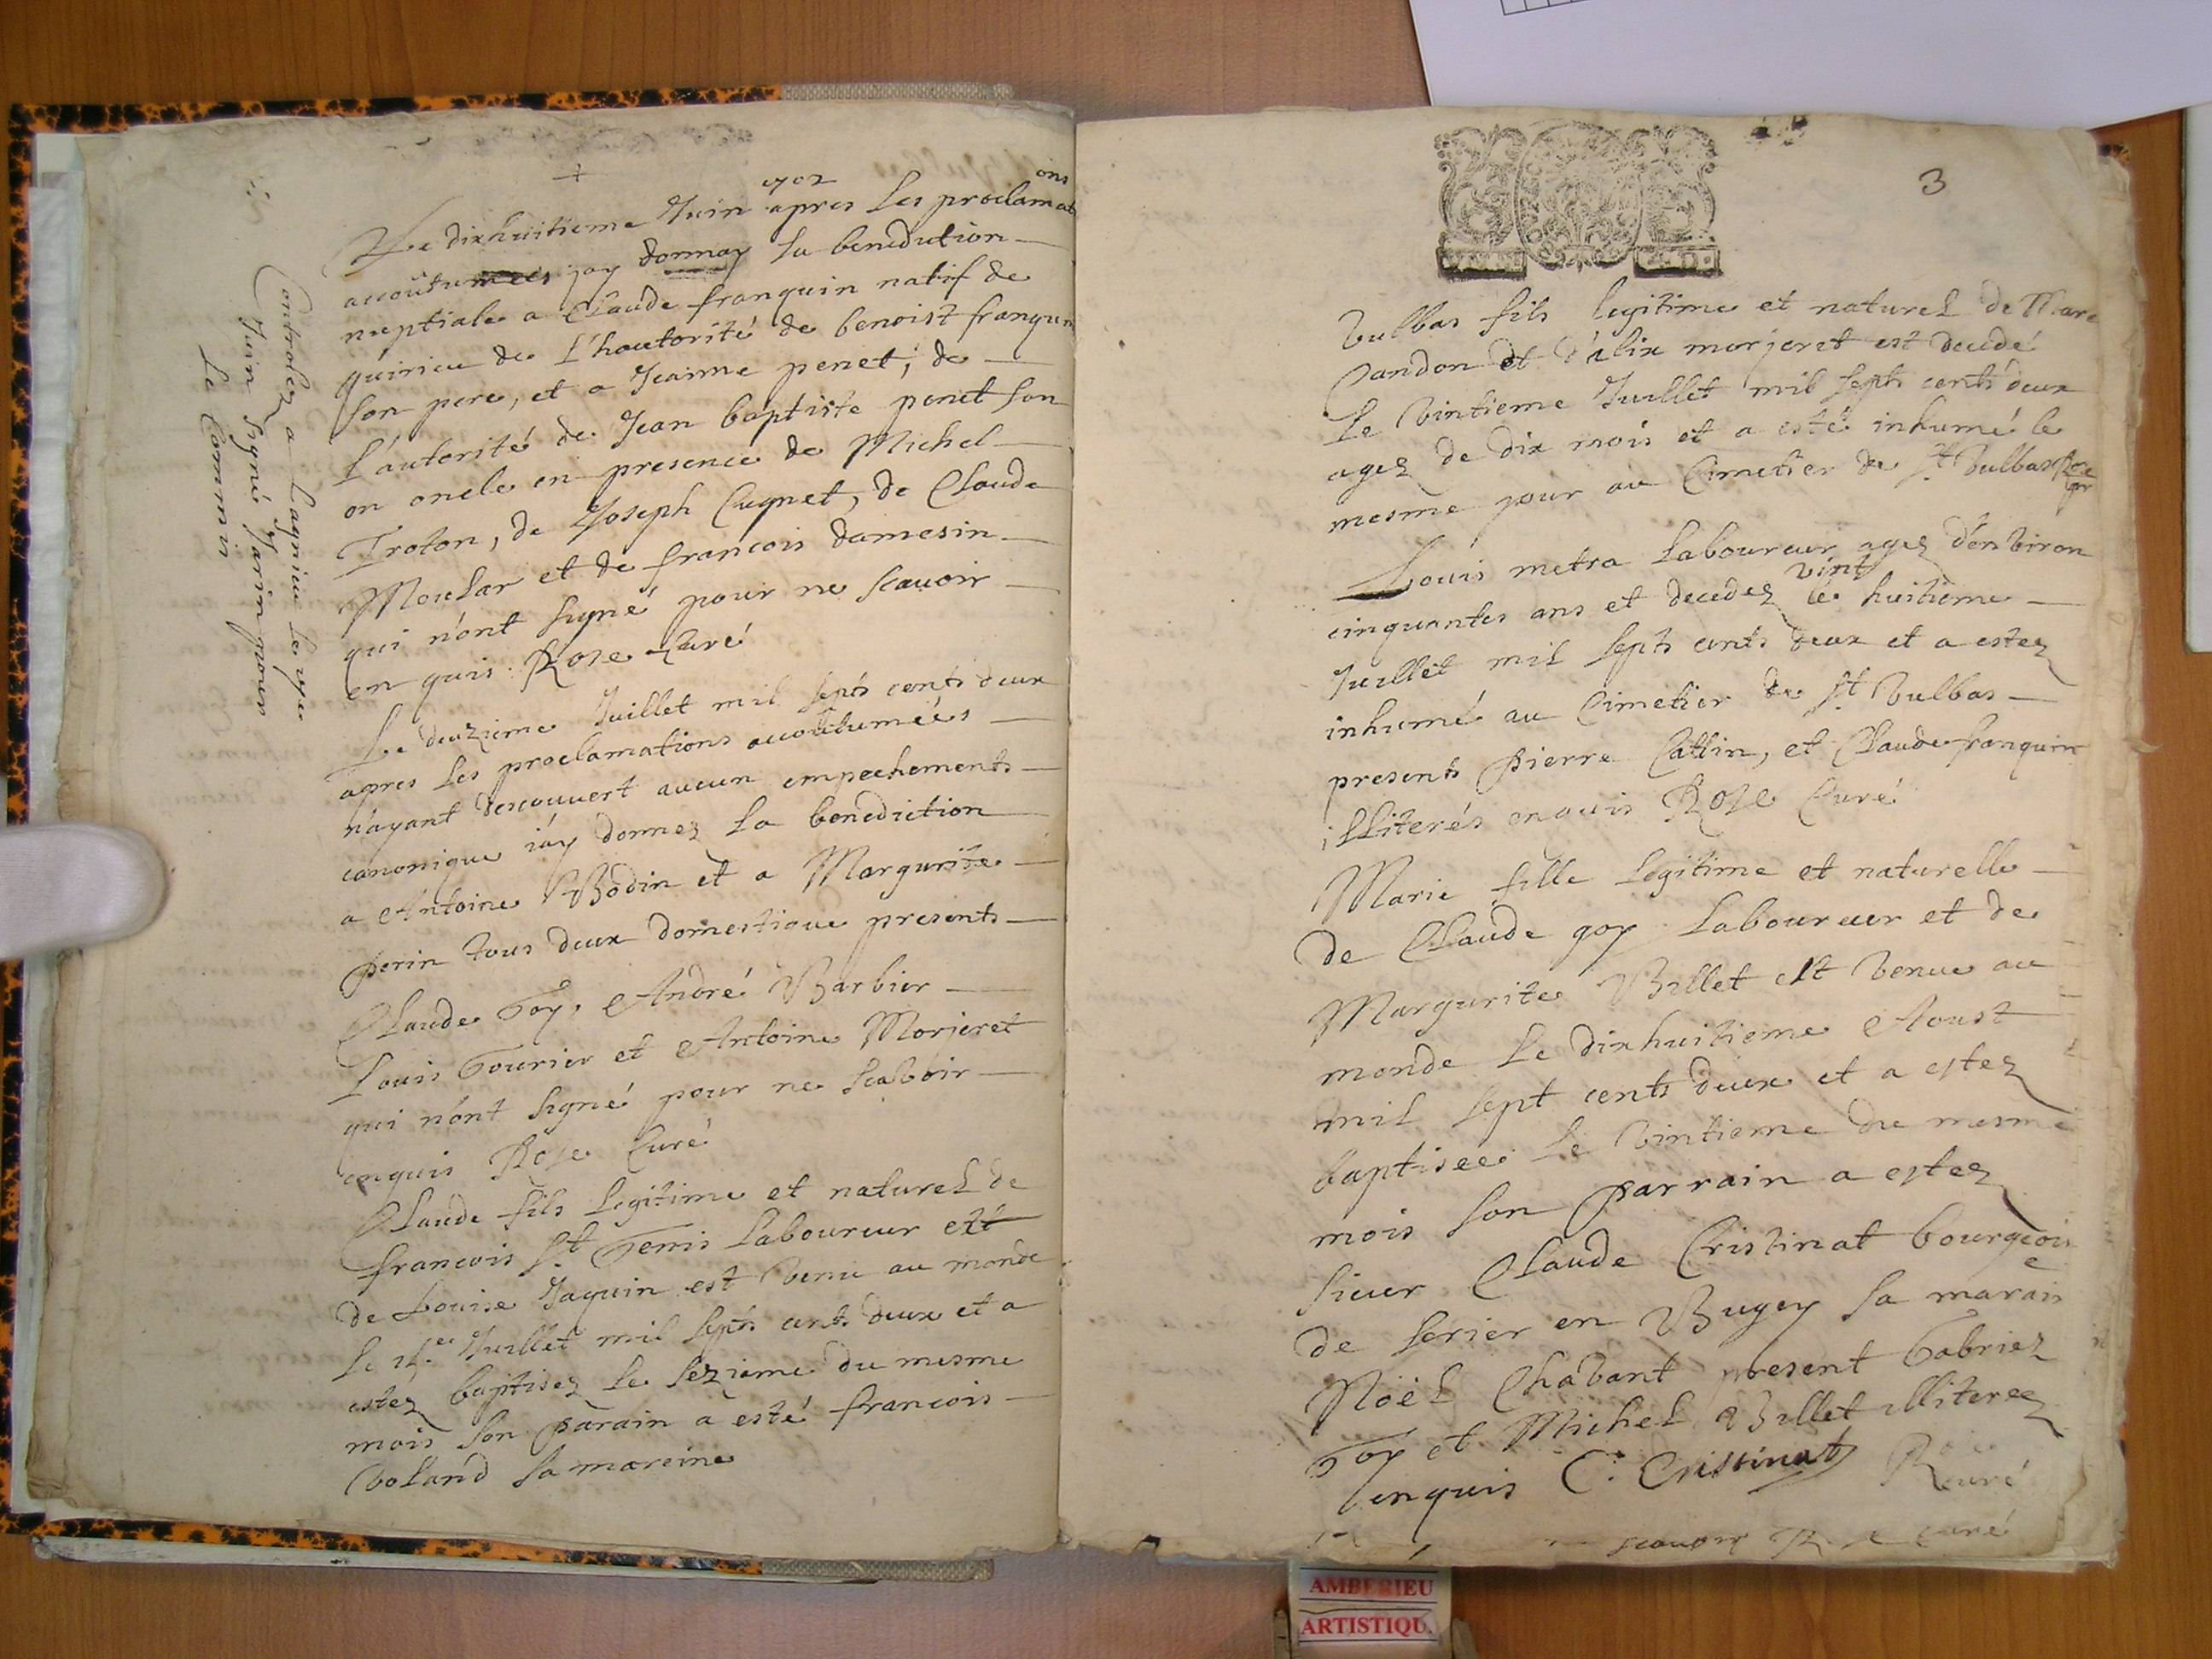 +
1702
Le dixhuitieme Juin apres Les proclamations
accoûtumées jay donnay la benedution
nuptiale a Claude franquin natif de
quirieu de L'hautorité de benoist franquin
son pere, et a Jeanne penet, de
L'autorité de Jean baptiste penet son
on oncle en presence de Michel
Troton, de Joseph Cugnet, de Claude
Mouhar et de francois damesin
qui n'ont signé pour ne scauoir
en quis Roze Curé
Controlez a Lagnieu le
Juin signé Jarrin pour
Le Commin
Le deuzieme Juillet mil septs cents deux
apres Les proclamations accoûtumées
n'ayant descouuert aucun empechements
canonique j'ay donnez La benediction
a Antoine Bodin et a Margurite
perin tous deux domestique presents
Claude Goy, André Barbier
Louis Gourier et Antoine Morjeret
qui n'ont signé pour ne scavoir
enquis Roze Curé
Claude fils Legitime et naturel de
francois St. Genis Laboureur et
de Louise Jaquin est venu au monde
le Juillet mil septs cents deux et a
estez baptisez le sezieme du mesme
mois son parain a esté francois
boland sa mareine
3
Vulbas fils legitime et naturel de Marc
Candon et d'alix morjeret est decedé
Le vintieme Juillet mil septs cents deux
agez de dix mois et a esté inhumé le
mesme jour au Cimetier de St. Vulbas Roze
Louis metra Laboureur agez d'environ
cinquantes ans et decedez le vint huitieme
Juillet mil septs cents deux et a estez
inhumé au Cimetier de St. Vulbas
presents pierre Cattin, et Claude franquin
illiterés enquis Roze Curé
Marie fille Legitime et naturelle
de Claude goy Laboureur et de
Margurite Billet est venue au
monde Le dixhuitieme Aoust
mil sept cents deux et a estez
baptisee Le vintieme du mesme
mois son parrain a estez
sieur Claude Cristinat bourgeois
de serier en Bugey sa maraine
Noël Chavant present Gabriez
Goy et Michel Billet illiterez
enquis C. Cristinat Roze curé
scauoir R curé
AMBERIEU
ARTISTIQU